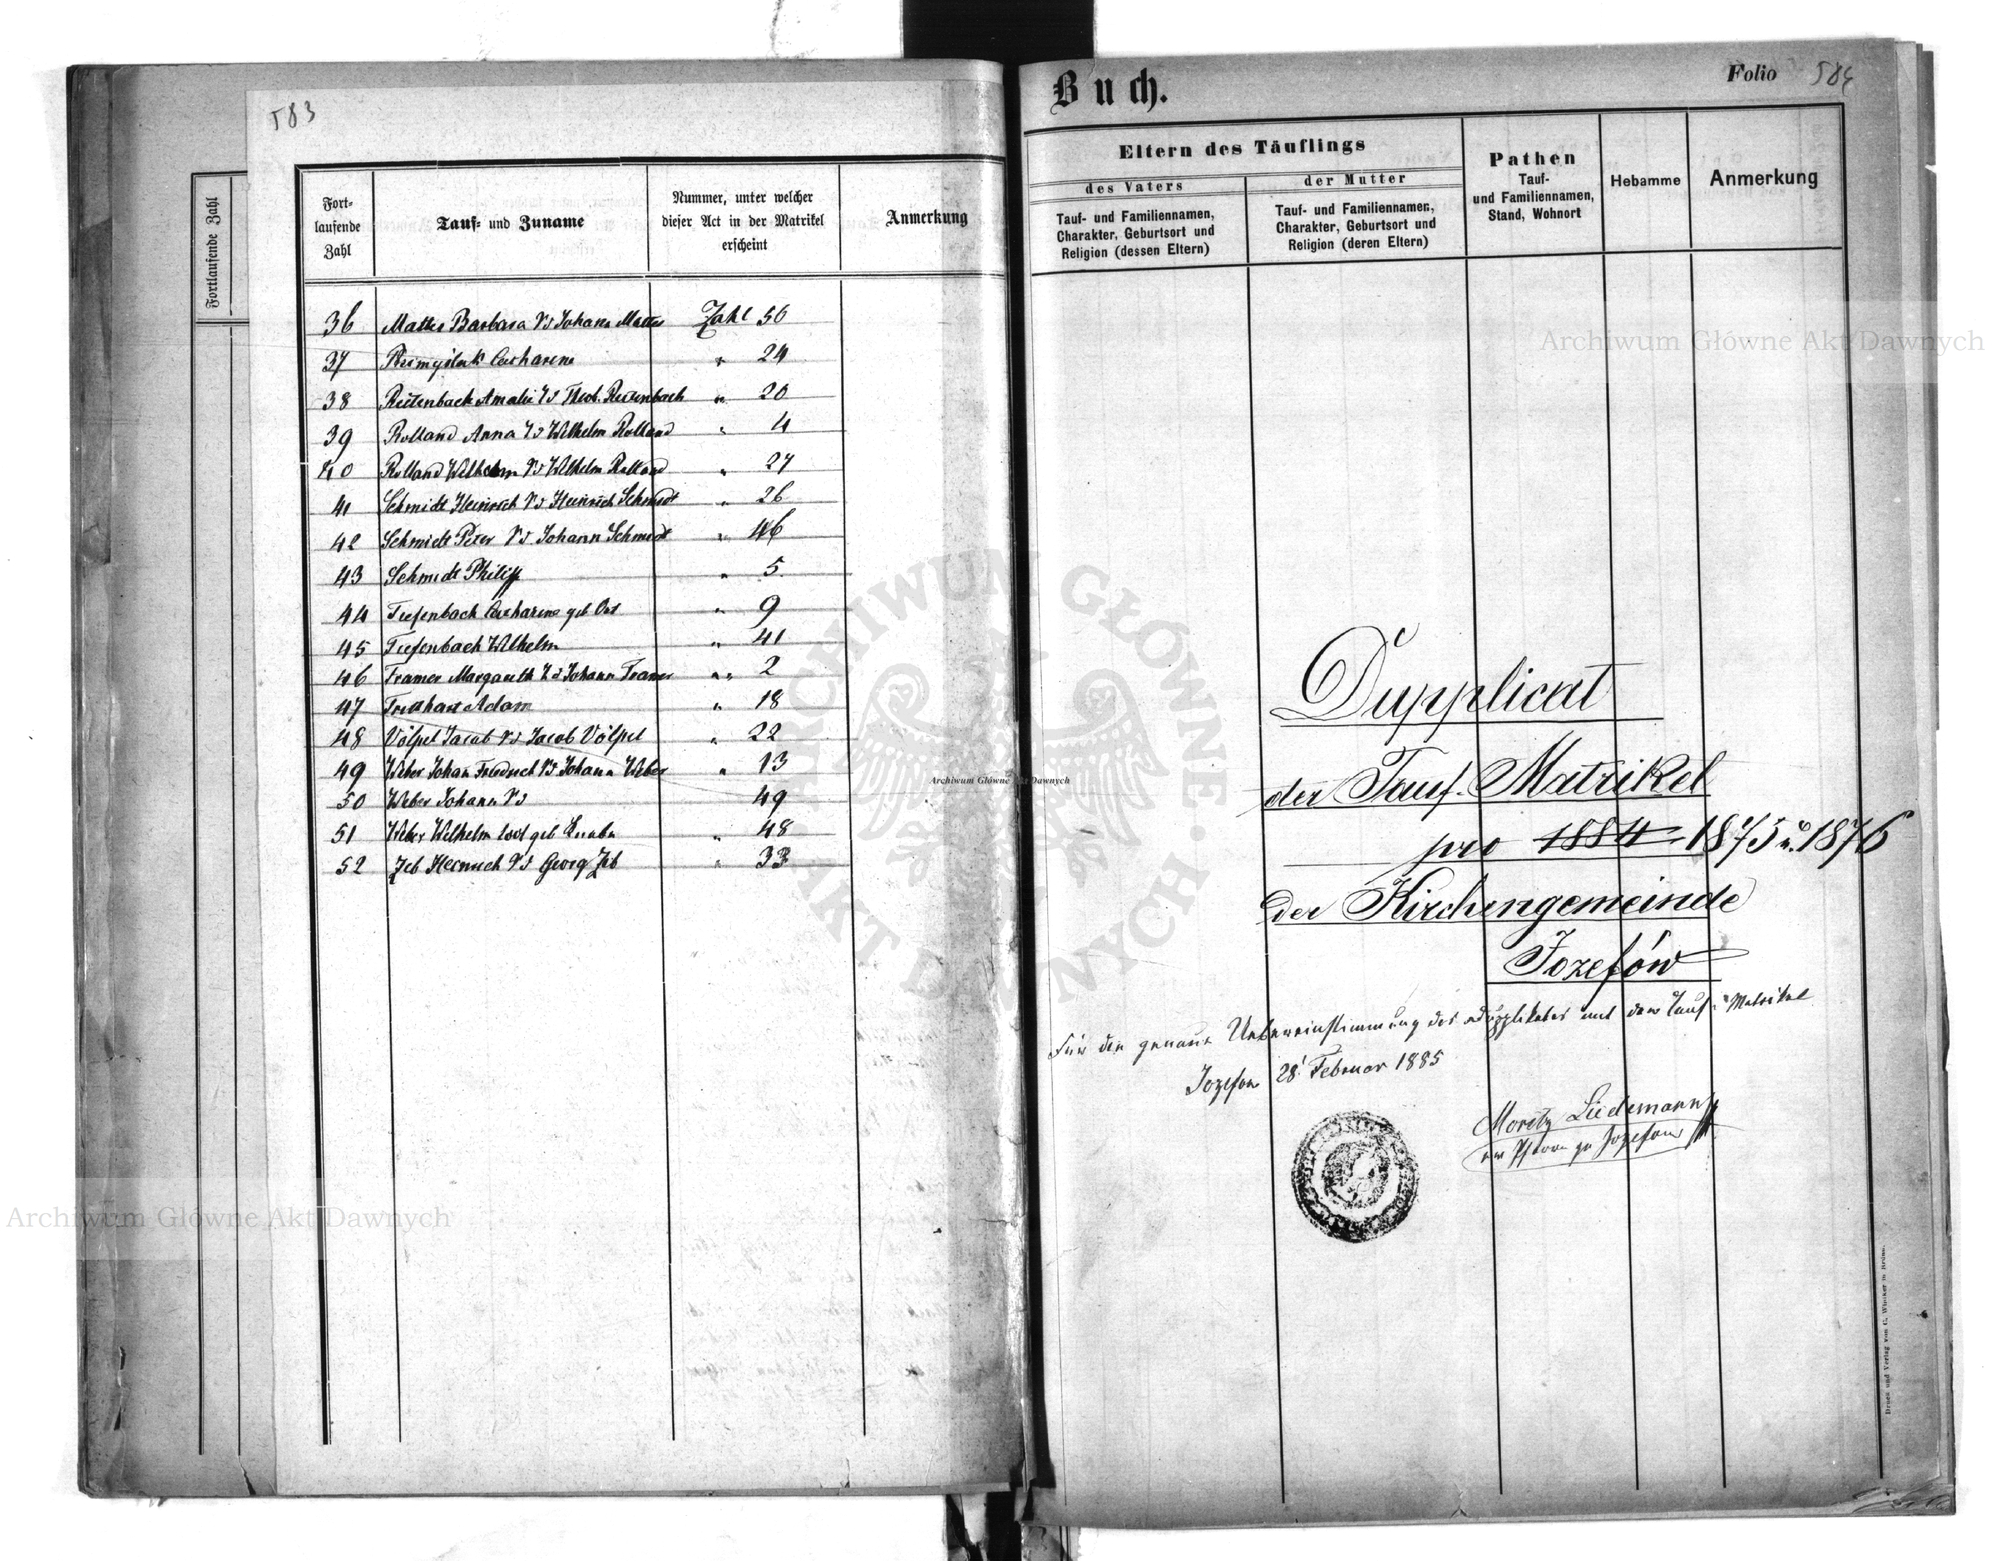 583
Fortlaufende Zahl
Fort-
laufende
Zahl
Tauf- und Zuname
Nummer, unter welcher
dieser Act in der Matrikel
erscheint
Anmerkung
36 Mattes Barbara Johann Mattes Zahl 56
37 Catharina " 24
38 Reitenbach Amalie Reitenbach " 20
39 Rolland Anna Wilhelm Rolland " 4
40 Rolland Wilhelm Wilhelm Rolland " 27
41 Schmidt Heinrich Heinrich Schmidt " 26
42 Schmidt Peter Johann Schmidt " 46
43 Schmidt Philipp " 5
44 Tiefenbach Catharina geb " 9
45 Tiefenbach Wilhelm " 41
46 Framer Margareth Johann Framer " 2
47 Adam " 18
48 Völpel Jacob Jacob Völpel " 22
49 Weber Johan Friedrich Johann Weber " 13
50 Weber Johann 49
51 Weber Wilhelm geb " 48
52 Zeb Heinrich Georg Zeb " 33
Buch.
Folio 584
Eltern des Täuflings
des Vaters
der Mutter
Tauf- und Familiennamen,
Charakter, Geburtsort und
Religion (dessen Eltern)
Tauf- und Familiennamen,
Charakter, Geburtsort und
Religion (deren Eltern)
Pathen
Tauf-
und Familiennamen,
Stand, Wohnort
Hebamme
Anmerkung
Dupplicat
der Tauf-Matrikel
pro 1884 1875 u. 1876
der Kirchengemeinde
Jozefów
Für die genaue Uebereinstimmung des Dupplikates mit der Tauf-Matrikel
Jozefow 28 Februar 1885
Moritz Liedemann
Jozefow
Druck und Verlag von C. Winiker in Brünn.
Archiwum Główne Akt Dawnych
Archiwum Główne Akt Dawnych
Archiwum Główne Akt Dawnych
ARCHIWUM GŁÓWNE AKT DAWNYCH